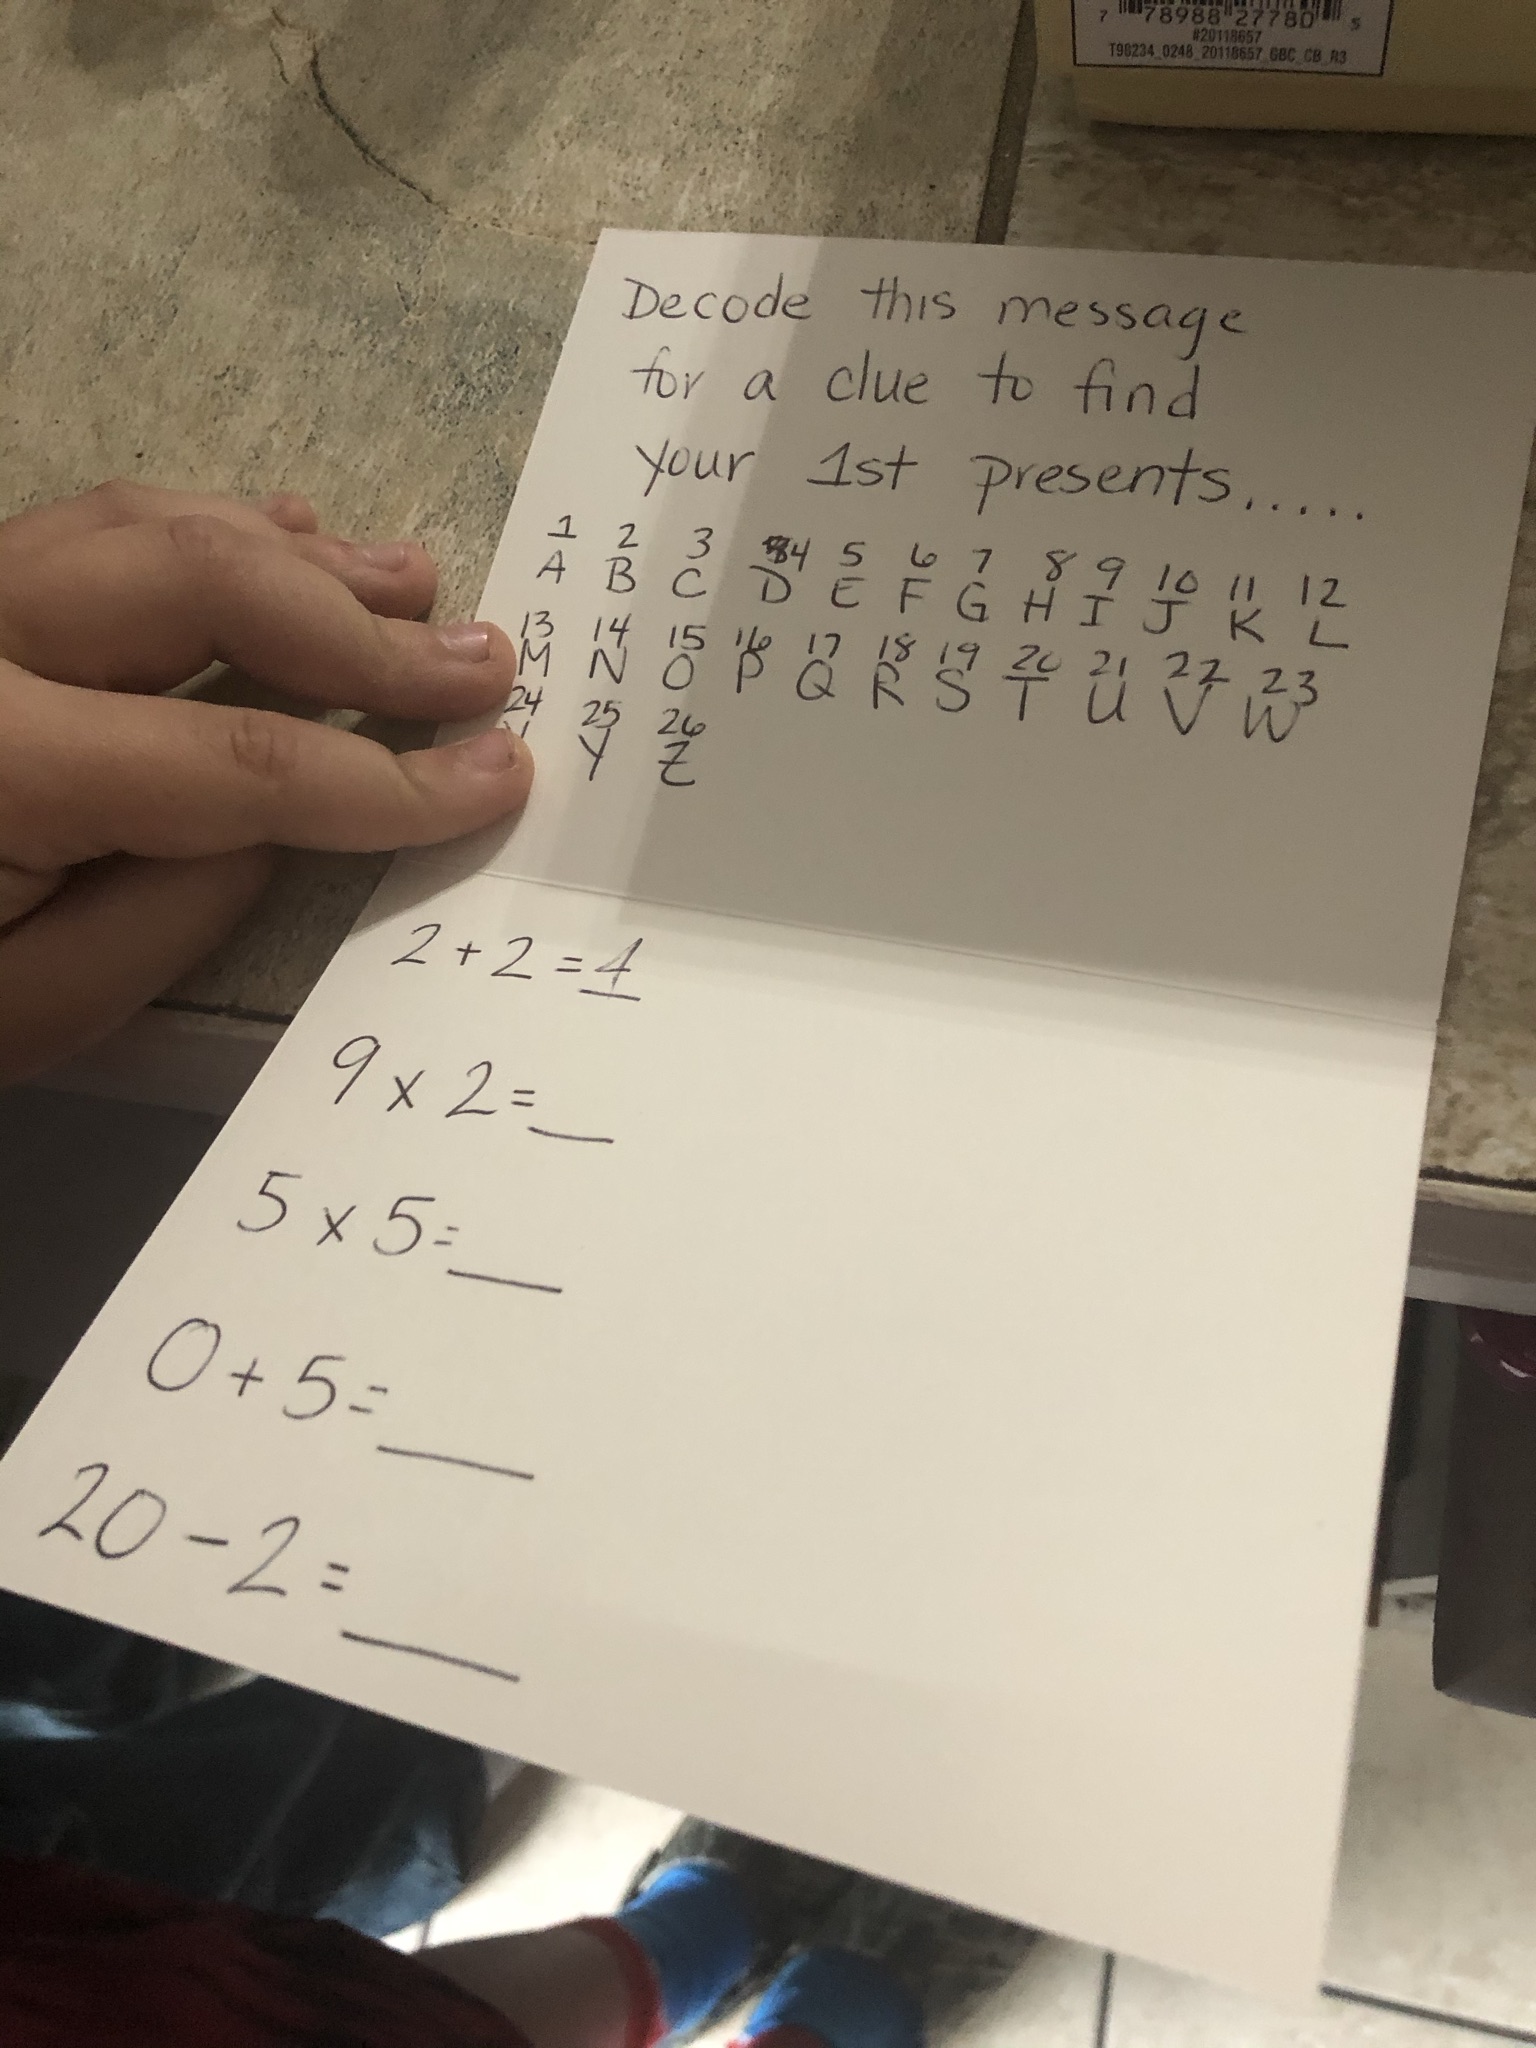 7 78988 27780 5
#20118657
T98234_0248_20118657_GBC_CB_R3
Decode this message
for a clue to find
your 1st presents.....
1 2 3 4 5 6 7 8 9 10 11 12
A B C D E F G H I J K L
13 14 15 16 17 18 19 20 21 22 23
M N O P Q R S T U V W
24 25 26
Y Z
2 + 2 = 4
9 x 2 = __
5 x 5 = __
0 + 5 = __
20 - 2 = __